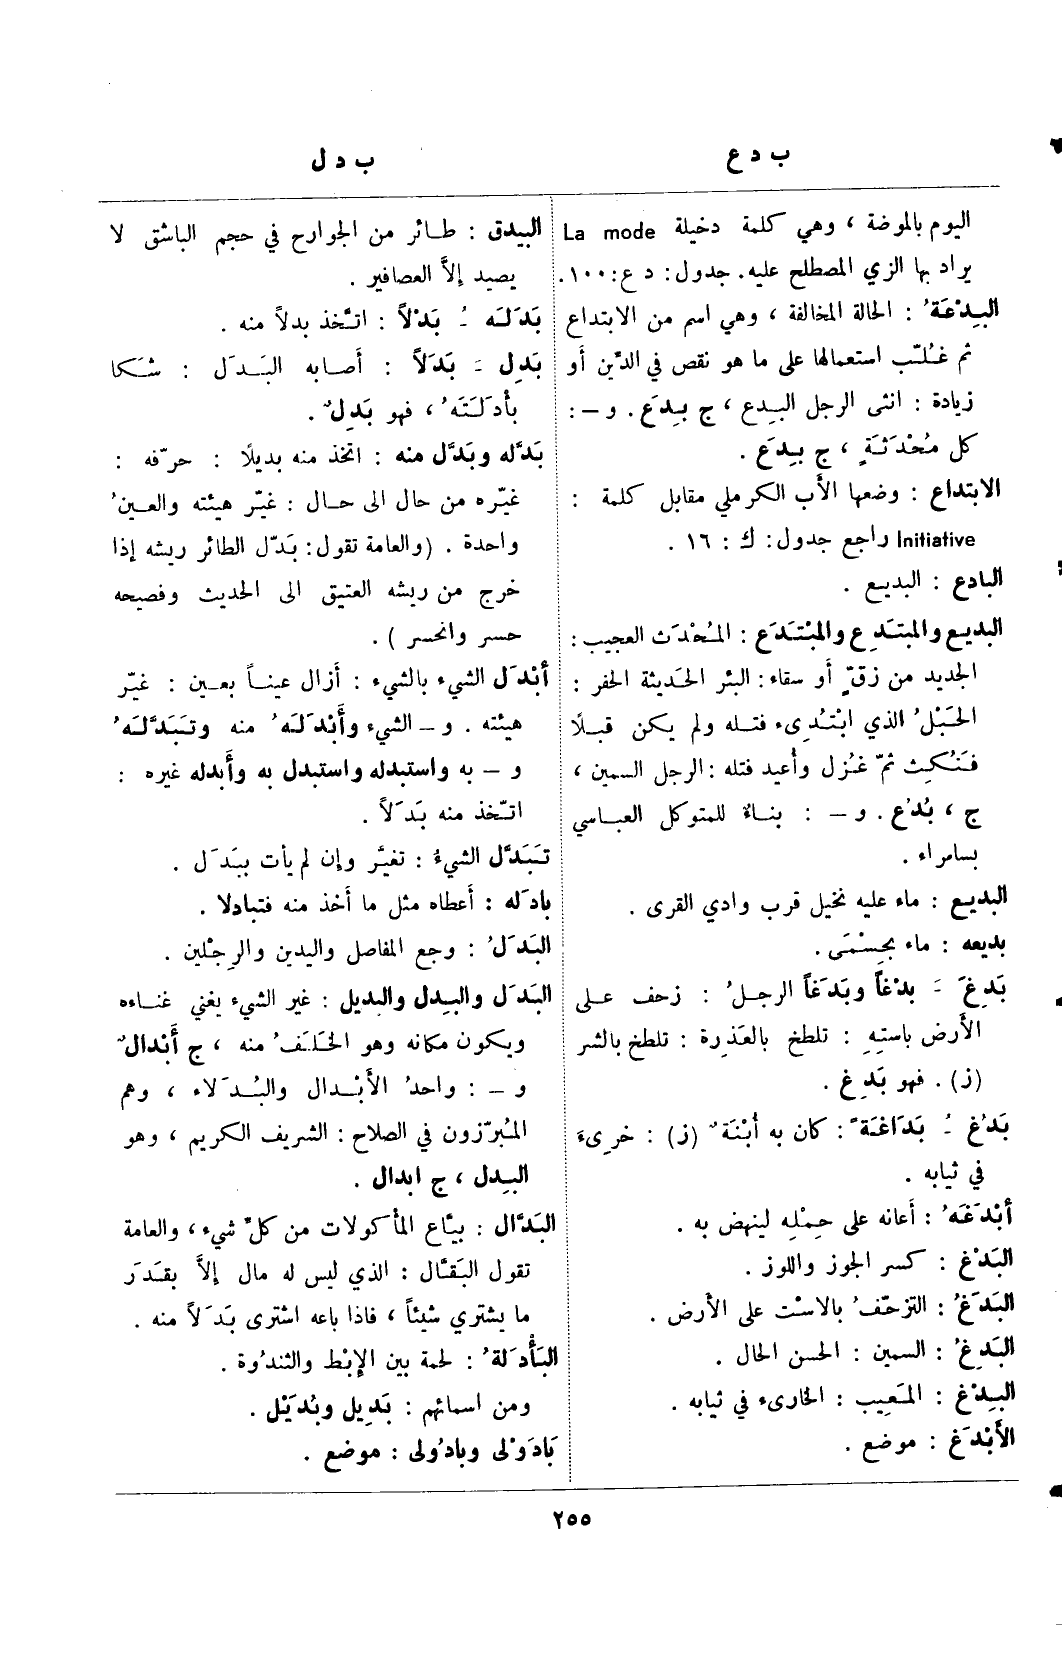 ب د ع
ب د ل
اليوم بالموضة ، وهي كلمة دخيلة La mode
يراد بها الزي المصطلح عليه. جدول: د ع: ١٠٠.
البِدْعَةُ : الحالة المخالفة ، وهي اسم من الابتداع
ثم غُلّب استعمالها على ما هو نقص في الدّين أو
زيادة : انثى الرجل البِدع ، ج بِدَع . و –:
كل مُحْدَثَةٍ ، ج بِدَع .
الابتداع : وضعها الأب الكرملي مقابل كلمة :
Initiative راجع جدول: ك : ١٦ .
البادع : البديع .
البديع والمبتَدِع والمبْتَدَع : المُحْدَث العجيب :
الجديد من زقّ أو سقاء: البئر الحَديثة الحفر :
الحَبْلُ الذي ابْتُدِىء فتله ولم يكن قبلًا
فَنُكِث ثمّ غُزل وأعيد فتله : الرجل السمين ،
ج ، بُدْع . و – : بناءٌ للمتوكل العباسي
بسامراء .
البديع : ماء عليه نخيل قرب وادي القرى .
بديعه : ماء بحِسْمَى .
بَدِغَ َ بدْغاً وبَدَغاً الرجلُ : زحف على
الأرض باستِهِ : تلطخ بالعَذِرة : تلطخ بالشر
(ز) . فهو بَدِغ .
بَدُغ ُ بَدَاغَةً : كان به أُبْنَةٌ (ز) : خرِىءَ
في ثيابه .
أبْدَغَهُ : أعانه على حِمْلِه لينهض به .
البَدْغ : كسر الجوز واللوز .
البَدَغُ : التزحّفُ بالاسْت على الأرض .
البَدِغُ : السمين : الحسن الحال .
البِدْغ : المَعِيب : الخارىء في ثيابه .
الأبْدَغ : موضع .
البيدق : طائر من الجوارح في حجم الباشق لا
يصيد إلاَّ العصافير .
بَدَلَه ُ بَدْلاً : اتَّخذ بدلاً منه .
بَدِل َ بَدَلاً : أصابه البَدَل : شكا
بأدَلَتَهُ ، فهو بَدِلٌ .
بَدَّله وبَدَّل منه : اتخذ منه بديلًا : حرّفه :
غيّره من حال الى حال : غيّر هيئته والعينُ
واحدة . (والعامة تقول: بَدّل الطائر ريشه إذا
خرج من ريشه العتيق الى الحديث وفصيحه
حسر وانحسر ) .
أبْدَل الشيء بالشيء : أزال عيناً بعين : غيّر
هيئته . و – الشيء وأَبْدَلَهُ منه وتبَدَّلَهُ
و – به واستبدله واستبدل به وأَبدله غيره :
اتّخذ منه بَدَلاً .
تَبَدَّل الشيءُ : تغيَّر وإن لم يأت ببَدَل .
بادَله : أعطاه مثل ما أخذ منه فتبادلا .
البَدَلُ : وجع المفاصل واليدين والرِجْلين .
البَدَل والبِدل والبديل : غير الشيء يغني غناءه
ويكون مكانه وهو الخَلَفُ منه ، ج أَبْدالٌ
و – : واحدُ الأبْدال والبُدَلاء ، وهم
المُبرّزون في الصلاح : الشريف الكريم ، وهو
البِدل ، ج ابدال .
البَدَّال : بيّاع المأكولات من كلّ شيء ، والعامة
تقول البَقَّال : الذي ليس له مال إلاَّ بقَدَر
ما يشتري شيئاً ، فاذا باعه اشترى بَدَلاً منه .
البَأْدَلةُ : لحمة بين الإبْط والثندُوة .
ومن اسمائهم : بَدِيل وبُدَيْل .
بَادَوْلى وبادُولى : موضع .
٢٥٥